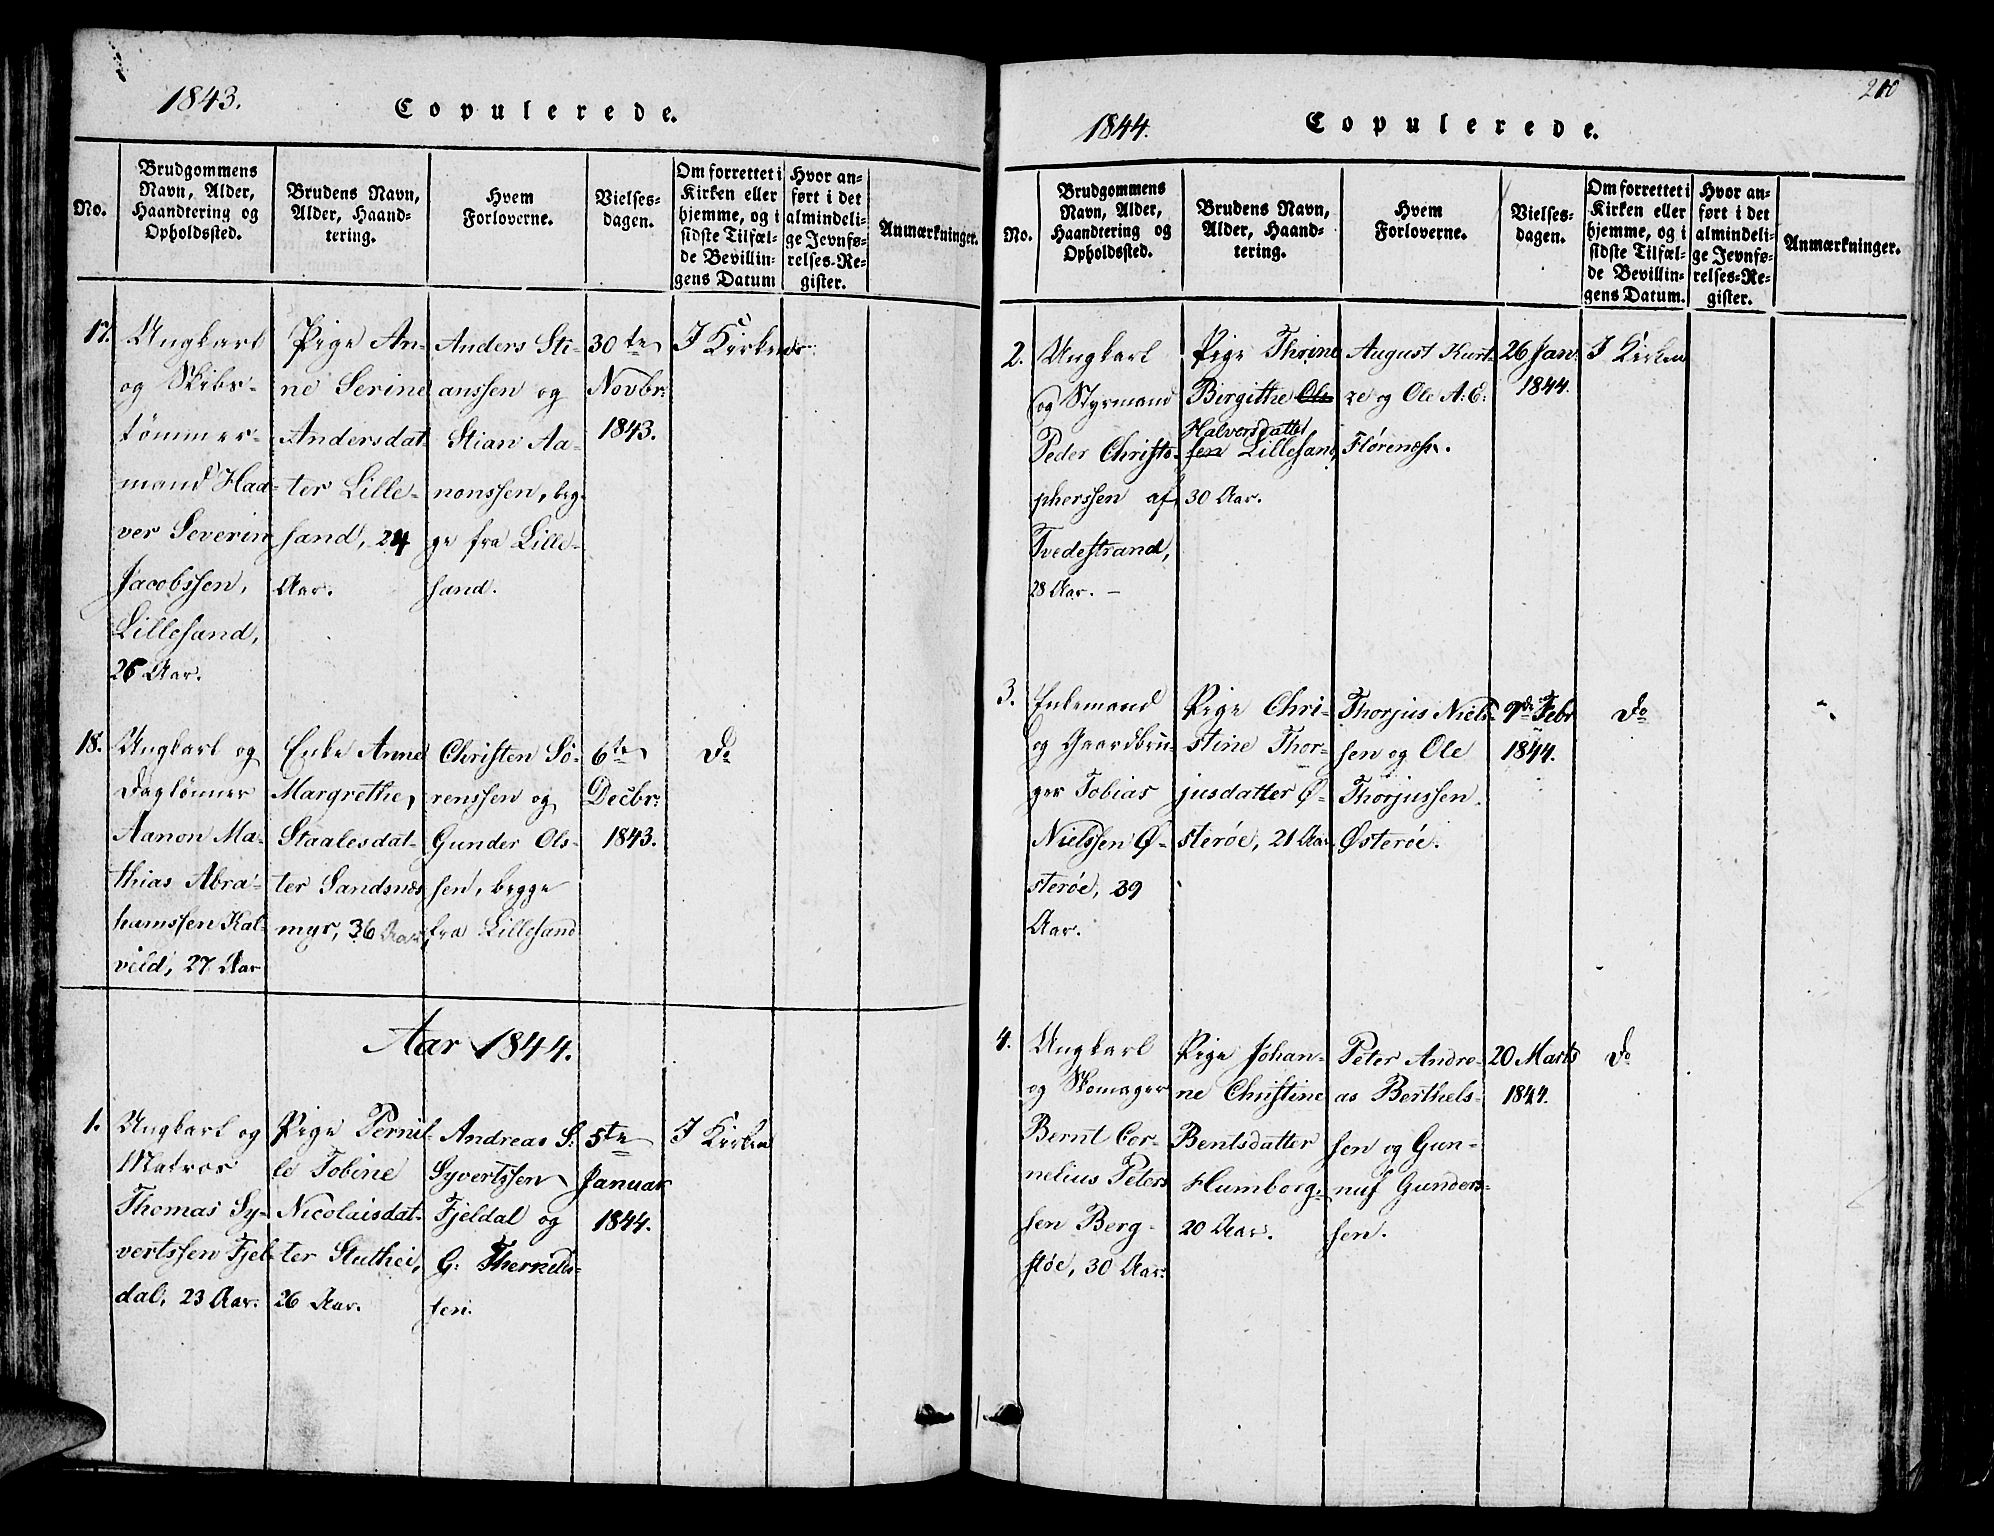 1843.
Copulerede.
No.
Brudgommens
Navn, Alder,
Haandtering og
Opholdssted.
Brudens Navn,
Alder, Haand-
tering.
Hvem
Forloverne.
Vielses-
dagen.
Om forrettet i
Kirken eller
hjemme, og i
sidste Tilfæl-
de Bevillin-
gens Datum
Hvor an-
ført i det
almindeli-
ge Jevnfø-
relses-Re-
gister.
Anmærkninger.
17.
Ungkarl
og Skibs-
tømmer-
mand Haa-
ver Severin
Jacobssen,
Lillesand,
26 Aar.
Pige An-
ne Serine
Andersdat-
ter Lille-
sand, 24
Aar.
Anders Sti-
anssen og
Stian Aa-
nonssen, beg-
ge fra Lille-
sand.
30te
Novbr:
1843.
I Kirken
18.
Ungkarl og
Daglönner
Aanon Ma-
thias Abra-
hamssen Kal-
veld, 27 Aar
Enke Anne
Margrethe,
Staalesdat-
ter Sandsnes
myr, 36 Aar,
Christen Sö-
renssen og
Gunder Ols-
sen, begge
fra Lillesand
6te
Decbr:
1843.
Do
Aar 1844.
1.
Ungkarl og
Matros
Thomas Sy-
vertssen Fjel-
dal, 23 Aar.
Pige Pernil-
le Tobine
Nicolaisdat-
ter Stuthei,
26 Aar.
Andreas S:
Syvertssen
Fjeldal og
G: Therkelds-
sen.
5te
Januar
1844.
I Kirken
210
1844.
Copulerede.
No.
Brudgommens
Navn, Alder,
Haandtering og
Opholdssted.
Brudens Navn,
Alder, Haand-
tering.
Hvem
Forloverne.
Vielses-
dagen.
Om forrettet i
Kirken eller
hjemme, og i
sidste Tilfæl-
de Bevillin-
gens Datum.
Hvor an-
ført i det
almindeli-
ge Jevnfø-
relses-Re-
gister.
Anmærkninger.
2.
Ungkarl
og Styrmand
Peder Christo-
pherssen af
Tvedestrand,
28 Aar. —
Pige Thrine
Birgithe Ols
Halvorsdatter
sen Lillesand,
30 Aar.
August Kurt-
ze og Ole A: E:
Flørenæss.
26 Jan:
1844.
I Kirken
3.
Enkemand
og Gaardbru-
ger Tobias
Nielssen Ø-
sterøe, 39
Aar.
Pige Chri-
stine Thor-
jusdatter Ø-
sterøe, 21 Aar
Thorjus Niels-
sen og Ole
Thorjussen
Østerøe.
9de Febr
1844.
Do
4.
Ungkarl
og Skomager
Bernt Cor-
nelius Peters
sen Berg-
støe, 30 Aar.
Pige Johan-
ne Christine
Bentsdatter
Humborg,
20 Aar.
Peter Andre-
as Berthels-
sen og Gun-
nuf Gunders-
sen.
20 Marts
1844.
Do